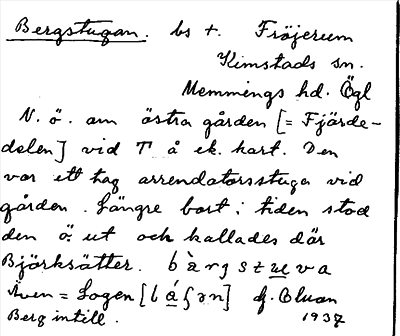 Bergstugan. bs +. Fröjerum
Kimstads sn.
Memmings hd. Ögl
N. ö. om östra gården [= Fjärde-
delen] vid T å ek. kart. Den
var ett tag arrendatorsstuga vid
gården. Längre bort i tiden stod
den ö. ut och kallades där
Björksätter.
Även = Logen
Berg intill. 1937